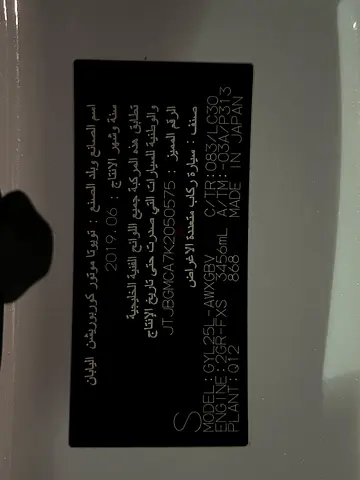 اسم الصانع وبلد الصنع : تويوتا موتور كوربوريشن اليابان
سنة وشهر الانتاج : 2019.06
تطابق هذه المركبة جميع اللوائح الفنية الخليجية
والوطنية للسيارات التي صدرت حتى تاريخ الإنتاج
الرقم المميز : JTJBGMCA7K2050575
صنف : سيارة ركاب متعددة الاغراض
S
MODEL:GYL25L-AWXGBV C/TR:083/LC30
ENGINE:2GR-FXS 3456mL A/TM:-03A/P313
PLANT:Q12 868 MADE IN JAPAN